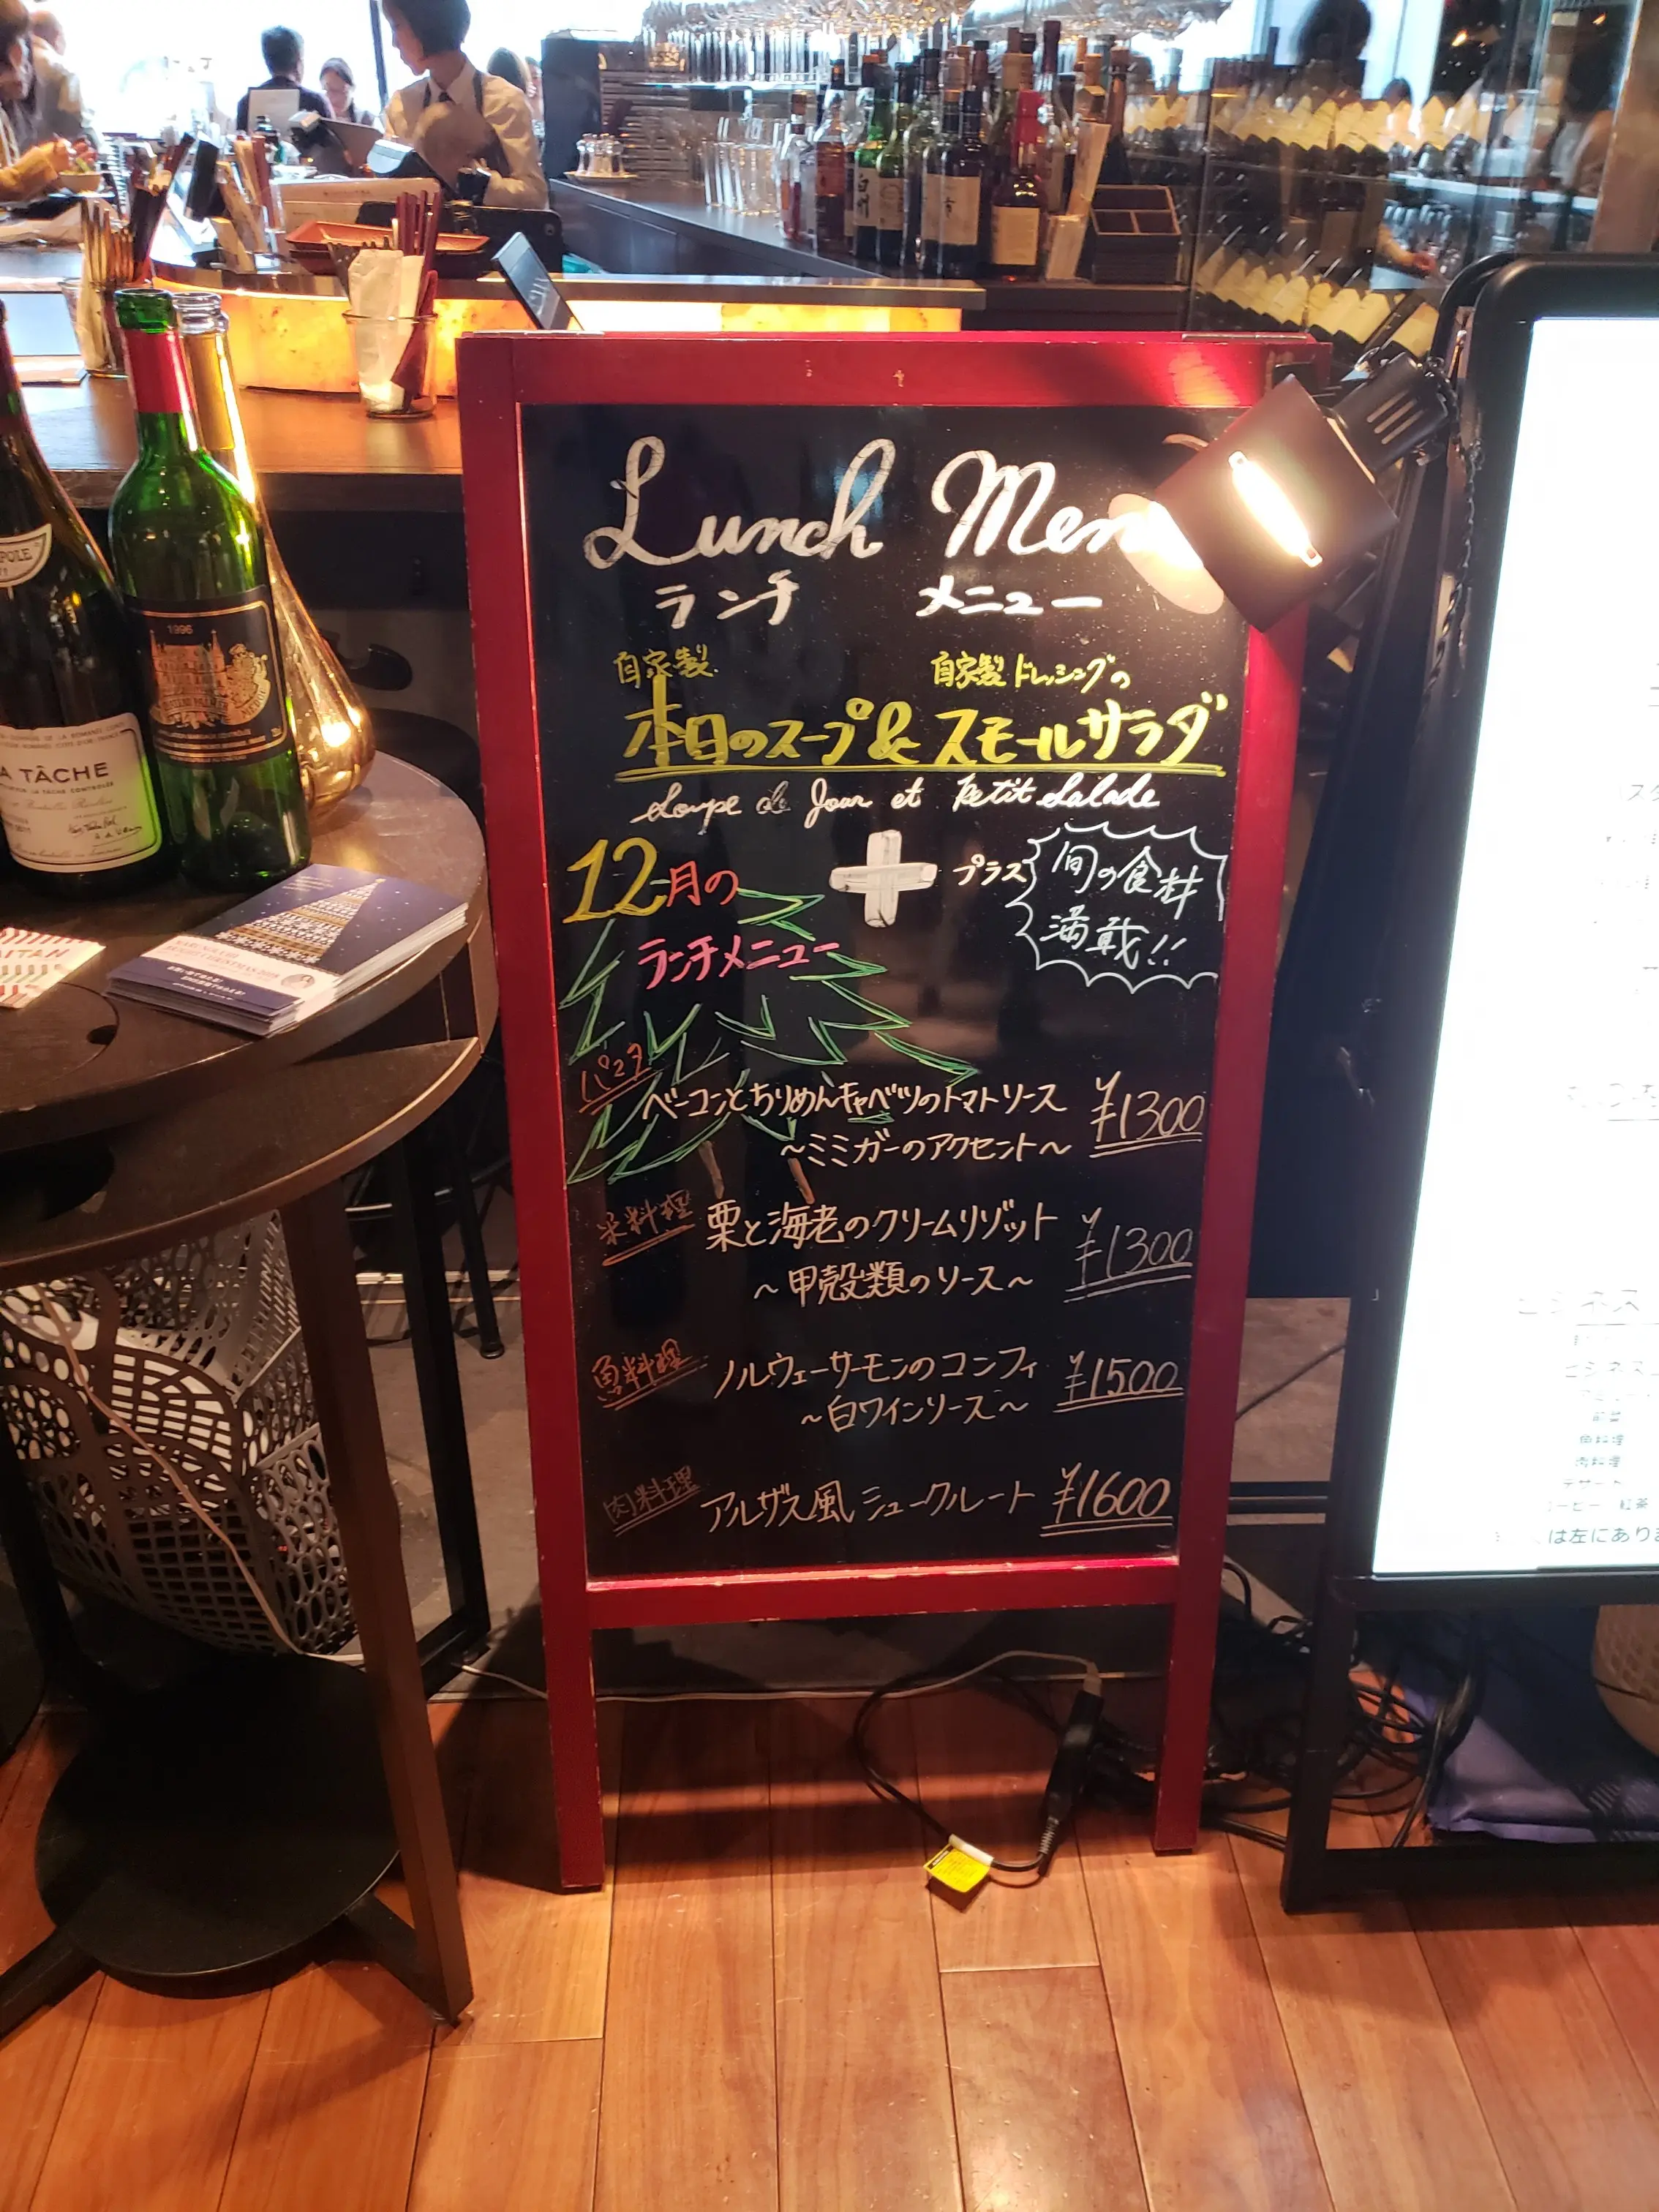 Lunch Men
ランチ メニュー
自家製 自家製ドレッシングの
本日のスープ & スモールサラダ
Soupe de Jour et Petit Salade
12月の + プラス 旬の食材
ランチメニュー 満載!!
パスタ
ベーコンとちりめんキャベツのトマトソース ¥1300
~ミミガーのアクセント~
米料理 栗と海老のクリームリゾット ¥1300
~甲殻類のソース~
魚料理 ノルウェーサーモンのコンフィ ¥1500
~白ワインソース~
肉料理 アルザス風 シュークルート ¥1600
A TÂCHE
1996
ビジネス
魚料理
肉料理
デザート
コーヒー 紅茶
は左にあり